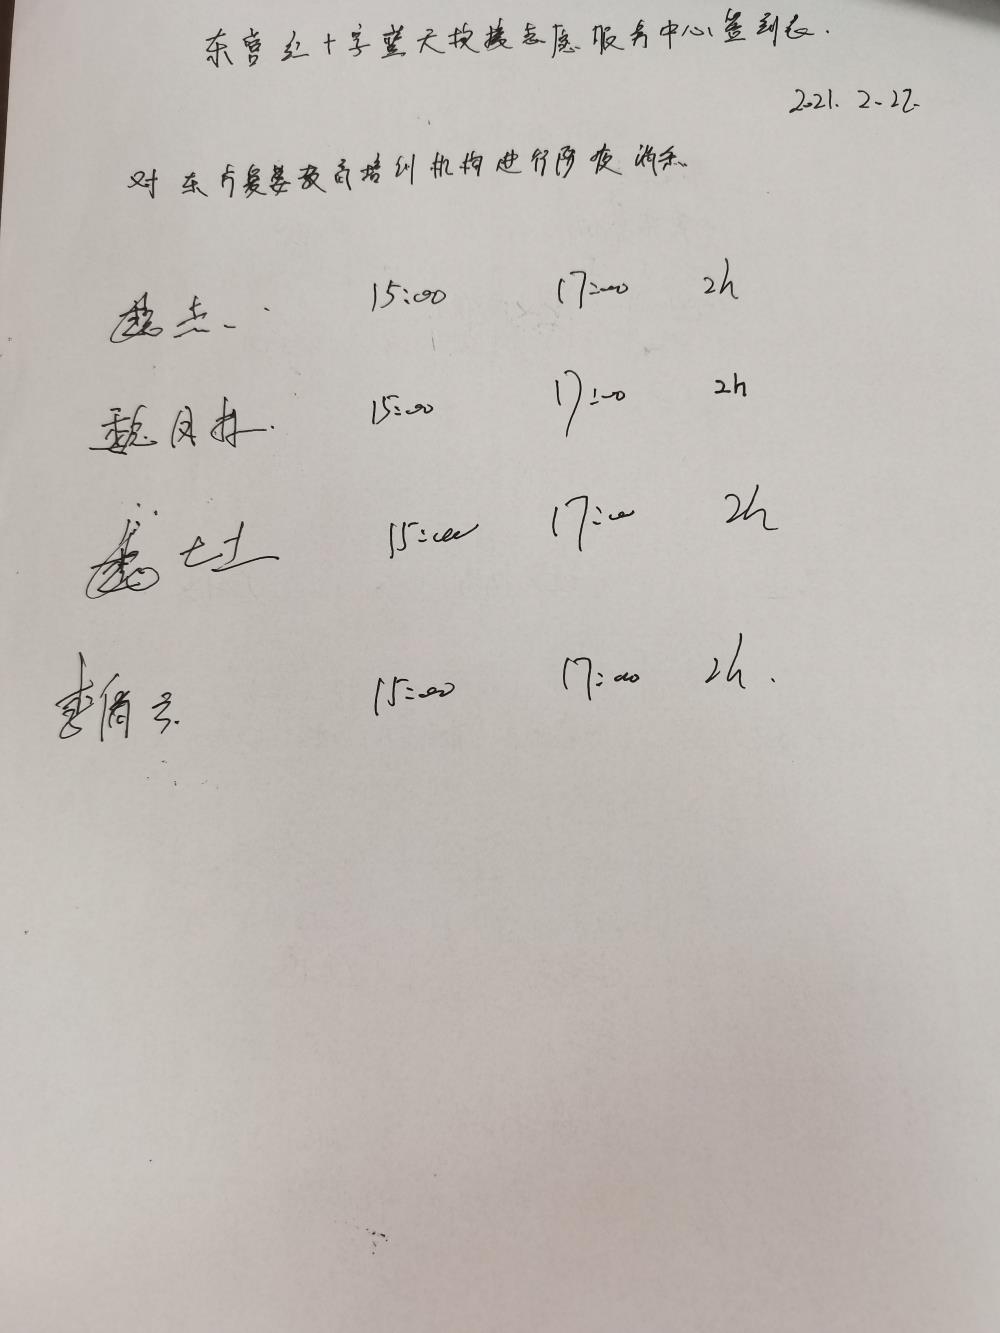 东营红十字蓝天救援志愿服务中心签到表.
2021. 2.27.
对东卢复婁教育培训机构进行防疫消杀.
15:00 17:00 2h
魏月井. 15:00 17:00 2h
15:00 17:00 2h
李倩云. 15:00 17:00 2h.